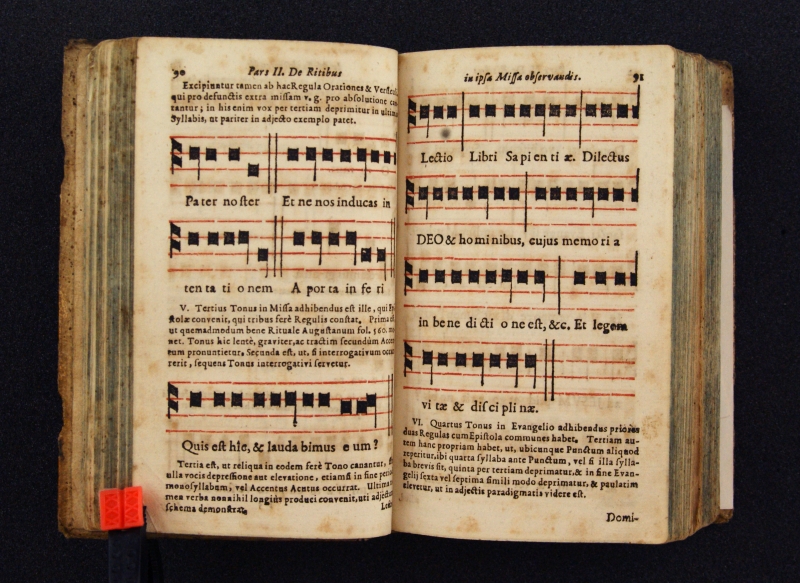 90 Pars II. De Ritibus
Excipiuntur tamen ab hac Regula Orationes & Versic
qui pro defunctis extra missam v. g. pro absolutione can
tantur; in his enim vox per tertiam deprimitur in ultima
Syllabis, ut pariter in adjecto exemplo patet.
Pater noster Et ne nos inducas in
ten ta ti o nem A por ta in fe ri
V. Tertius Tonus in Missa adhibendus est ille, qui Epi
stolæ convenit, qui tribus ferè Regulis constat. Prima e
ut quemadmodum bene Rituale Augustanum fol. 560. mo
net. Tonus hic lentè, graviter, ac tractim secundùm Acce
tum pronuntietur. Secunda est, ut, si interrogativum occur
rerit, sequens Tonus interrogativi servetur.
Quis est hic, & lauda bimus e um?
Tertia est, ut reliqua in eodem ferè Tono canantur,
ulla vocis depressione aut elevatione, etiamsi in fine peri
monosyllabum, vel Accentus Acutus occurrat. Ultima
men verba nonnihil longiùs produci convenit, uti adjectum
schema demonstrat.
Lectio
in ipsa Missa observandis. 91
Lectio Libri Sapi en ti æ. Dilectus
DEO & ho mi nibus, cujus memo ri a
in be ne di cti o ne est, &c. Et legem
vi tæ & dis ci pli næ.
VI. Quartus Tonus in Evangelio adhibendus priores
duas Regulas cum Epistola communes habet. Tertiam au-
tem hanc propriam habet, ut, ubicunque Punctum aliquod
reperitur, ibi quarta syllaba ante Punctum, vel si illa sylla-
ba brevis sit, quinta per tertiam deprimatur, & in fine Evan-
gelij sexta vel septima simili modo deprimatur, & paulatim
elevetur, ut in adjectis paradigmatis videre est.
Domi-